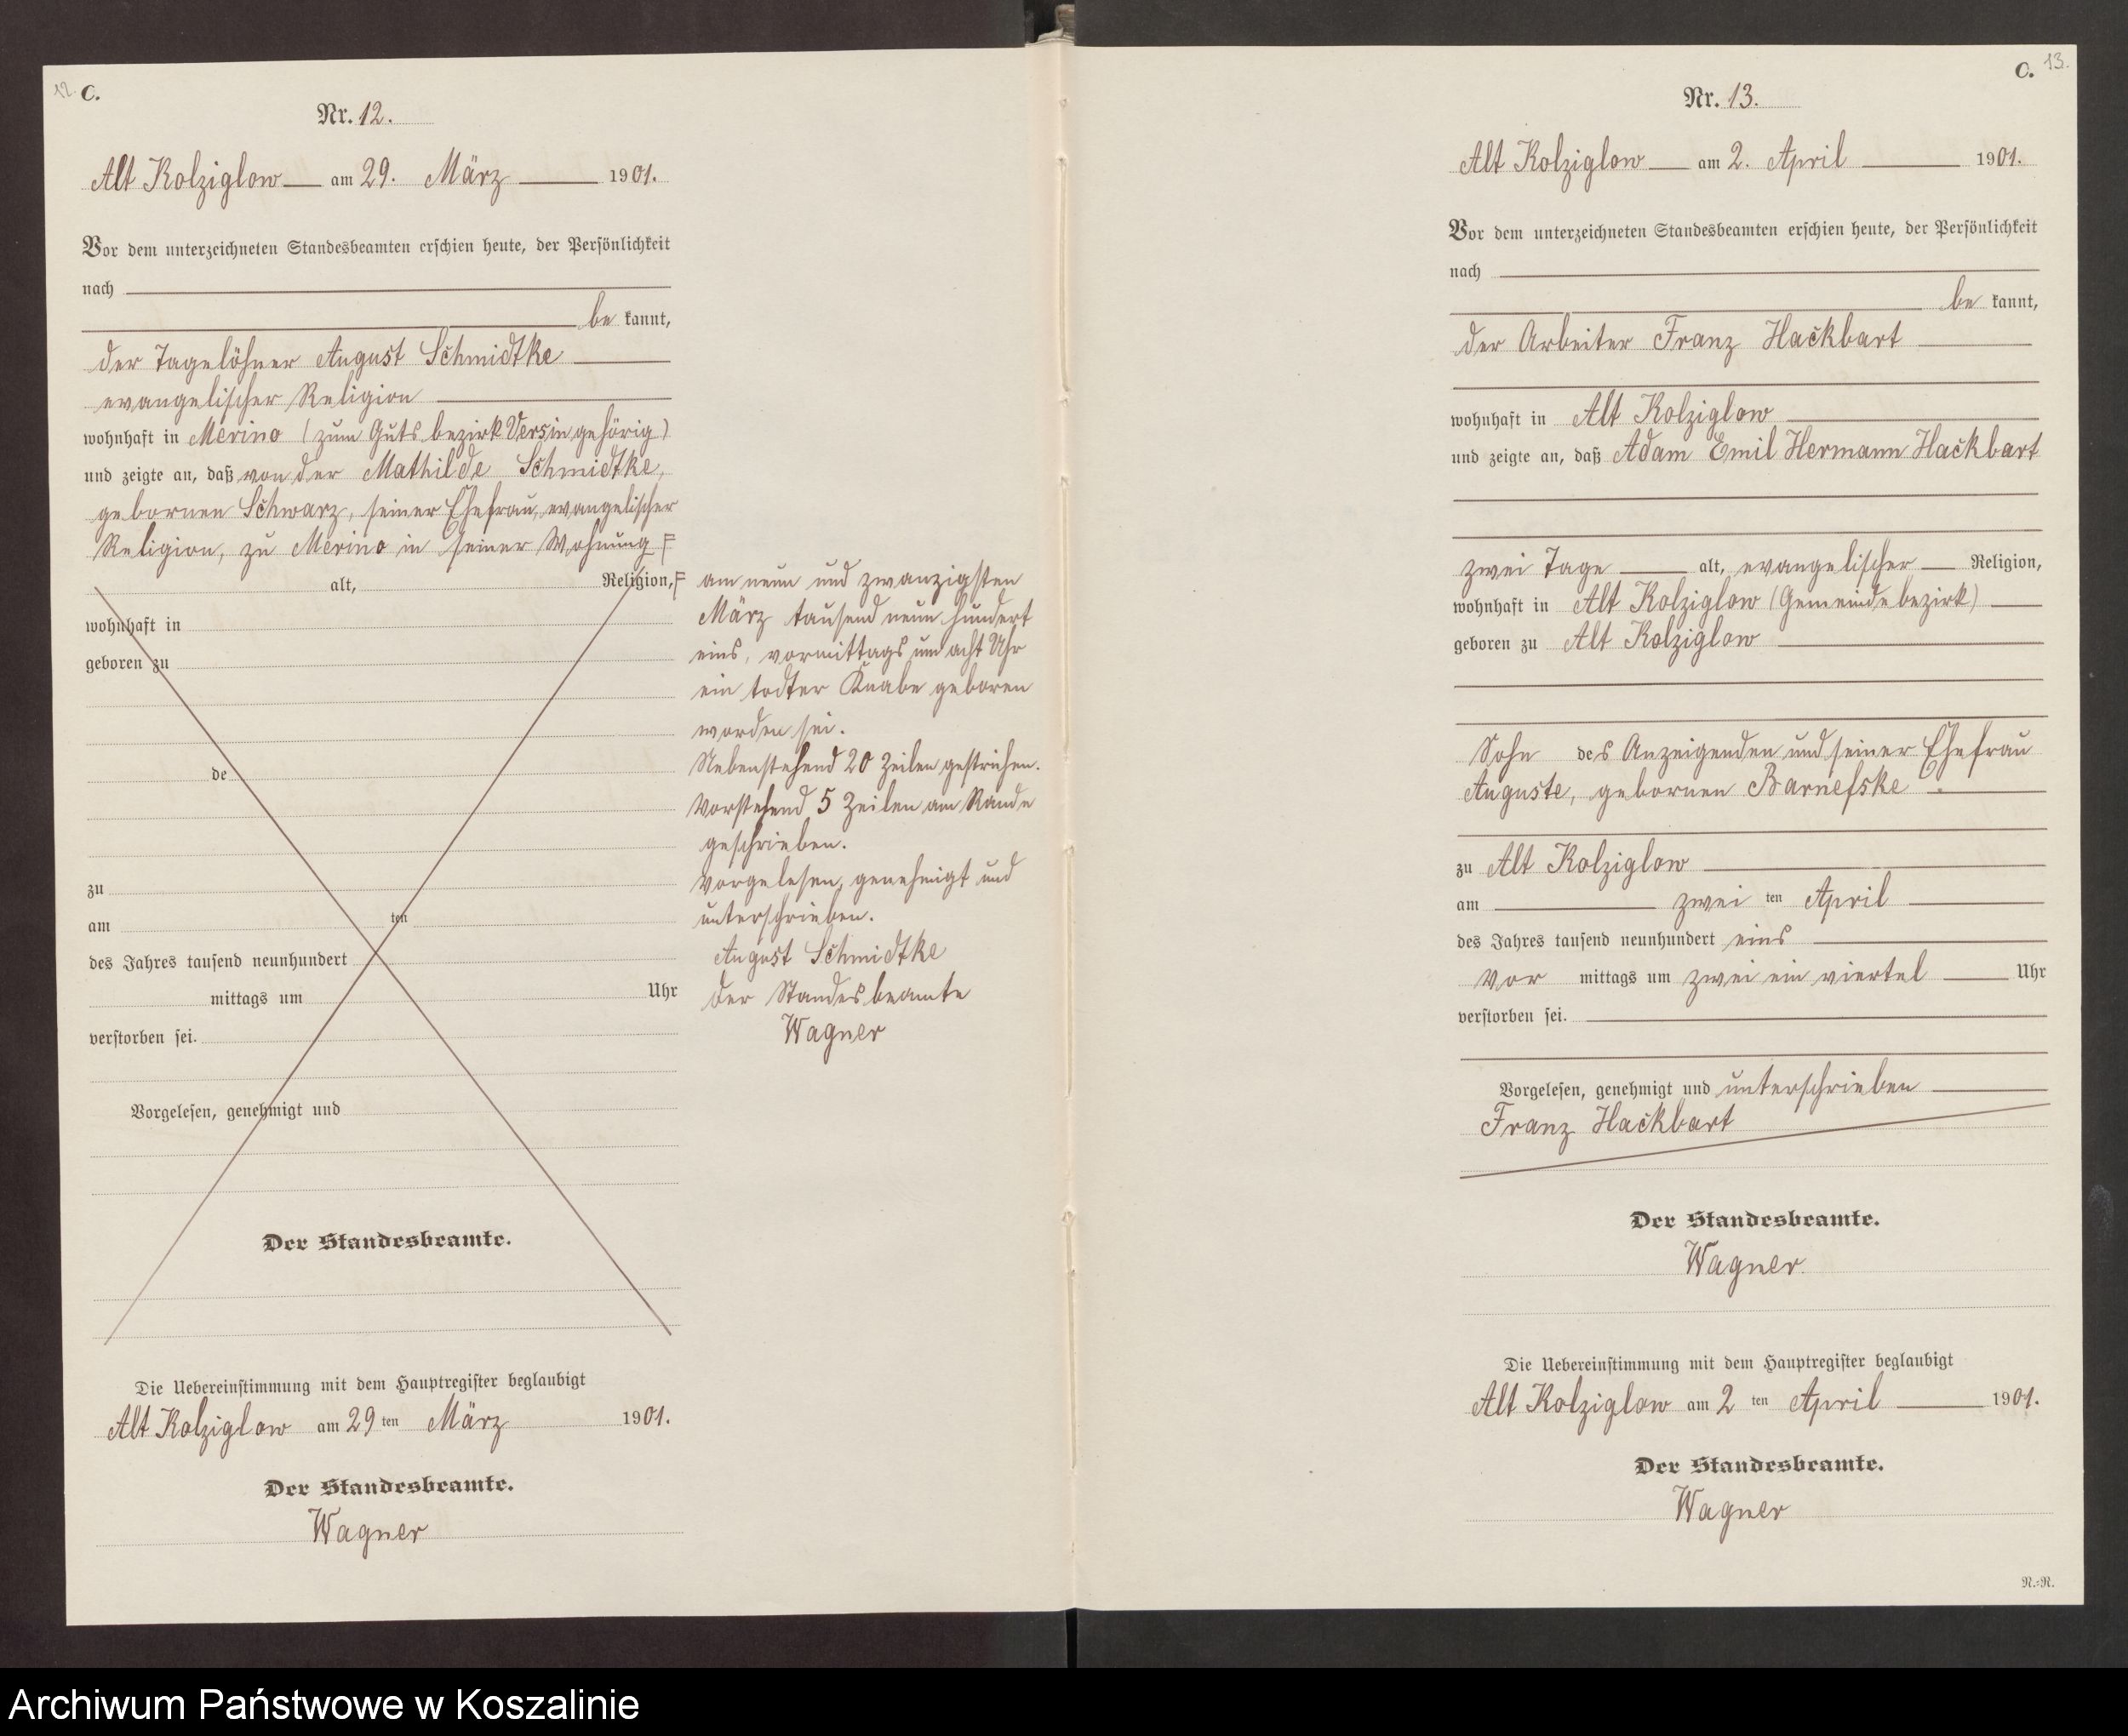 12. C.
Nr. 12.
Alt Kolziglow am 29. März 1901.
Vor dem unterzeichneten Standesbeamten erschien heute, der Persönlichkeit
nach
be kannt,
der Tagelöhner August Schmidtke
evangelischer Religion
wohnhaft in Merino (zum Gutsbezirk Versin gehörig)
und zeigte an, daß von der Mathilde Schmidtke,
gebornen Schwarz, seiner Ehefrau, evangelischer
Religion, zu Merino in seiner Wohnung F
alt, Religion, F
wohnhaft in
geboren zu
de
zu
am ten
des Jahres tausend neunhundert
mittags um Uhr
verstorben sei.
Vorgelesen, genehmigt und
Der Standesbeamte.
am neun und zwanzigsten
März tausend neun hundert
eins, vormittags um acht Uhr
ein todter Knabe geboren
worden sei.
Nebenstehend 20 Zeilen gestrichen.
Vorstehend 5 Zeilen am Rande
geschrieben.
Vorgelesen, genehmigt und
unterschrieben.
August Schmidtke
Der Standesbeamte
Wagner
Die Uebereinstimmung mit dem Hauptregister beglaubigt
Alt Kolziglow am 29 ten März 1901.
Der Standesbeamte.
Wagner
C. 13.
Nr. 13.
Alt Kolziglow am 2. April 1901.
Vor dem unterzeichneten Standesbeamten erschien heute, der Persönlichkeit
nach
be kannt,
der Arbeiter Franz Hackbart
wohnhaft in Alt Kolziglow
und zeigte an, daß Adam Emil Hermann Hackbart
zwei Tage alt, evangelischer Religion,
wohnhaft in Alt Kolziglow (Gemeindebezirk)
geboren zu Alt Kolziglow
Sohn des Anzeigenden und seiner Ehefrau
Auguste, gebornen Barnefske
zu Alt Kolziglow
am zwei ten April
des Jahres tausend neunhundert eins
Vor mittags um zwei ein viertel Uhr
verstorben sei.
Vorgelesen, genehmigt und unterschrieben
Franz Hackbart
Der Standesbeamte.
Wagner
Die Uebereinstimmung mit dem Hauptregister beglaubigt
Alt Kolziglow am 2 ten April 1901.
Der Standesbeamte.
Wagner
N.=N.
Archiwum Państwowe w Koszalinie